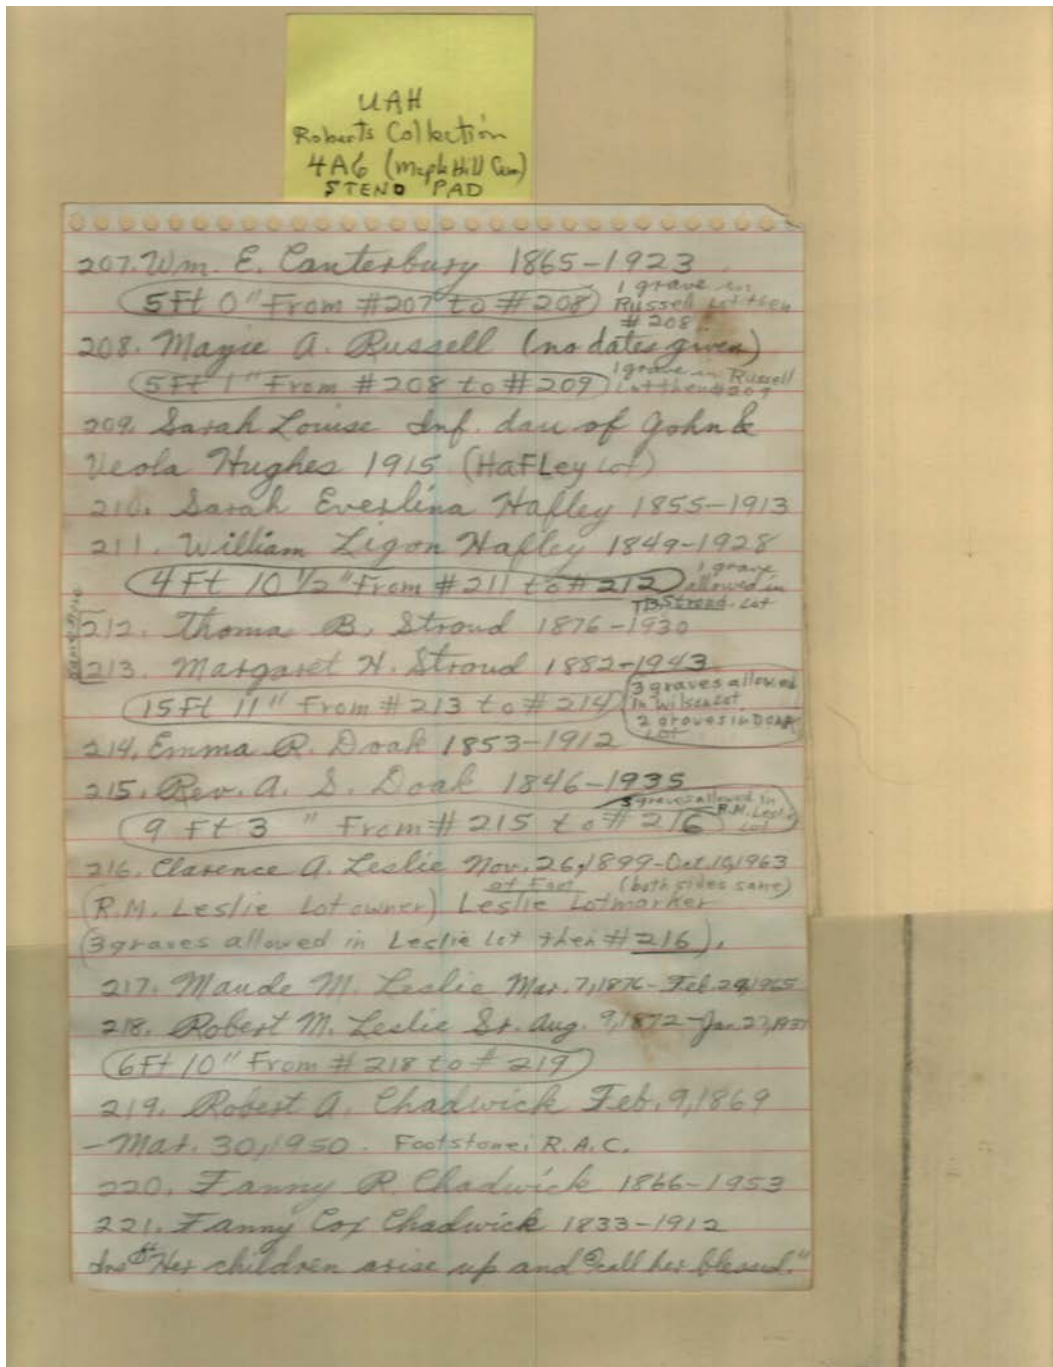 UAH
Roberts Collection
4A6 (Maple Hill Cem)
STENO PAD
207. Wm. E. Canterbury 1865-1923
5 Ft 0" From #207 to #208
1 grave in
Russell Lot then
#208
208. Mayie A. Russell (no dates given)
5 Ft 1" From #208 to #209
1 grave in Russell
Lot then #209
209. Sarah Louise Inf. dau of John &
Veola Hughes 1915 (HaFLey Lot)
210. Sarah Everlina Hafley 1855-1913
211. William Ligon Hafley 1849-1928
4 Ft 10 1/2" From #211 to #212
1 grave
allowed in
T.B. Stroud Lot
212. Thoma B. Stroud 1876-1930
213. Margaret H. Stroud 1882-1943
15 Ft 11" From #213 to #214
3 graves allowed
in Wilson Lot
2 graves in DOAK
Lot
214. Emma R. Doak 1853-1912
215. Rev. A. S. Doak 1846-1935
9 Ft 3" From #215 to #216
3 graves allowed in
R.M. Leslie
Lot
216. Clarence A. Leslie Nov. 26, 1899-Oct. 10, 1963
at Foot (both sides same)
(R.M. Leslie Lot owner) Leslie Lotmarker
(3 graves allowed in Leslie Lot then #216).
217. Maude M. Leslie Mar. 7, 1876- Feb. 1965
218. Robert M. Leslie Sr. Aug. 9, 1872-Jan. 27,
6 Ft 10" From #218 to #219
219. Robert A. Chadwick Feb. 9, 1869
-Mar. 30, 1950. Footstone: R.A.C.
220. Fanny R. Chadwick 1866-1953
221. Fanny Cox Chadwick 1833-1912
Ins "Her children arise up and call her blessed."